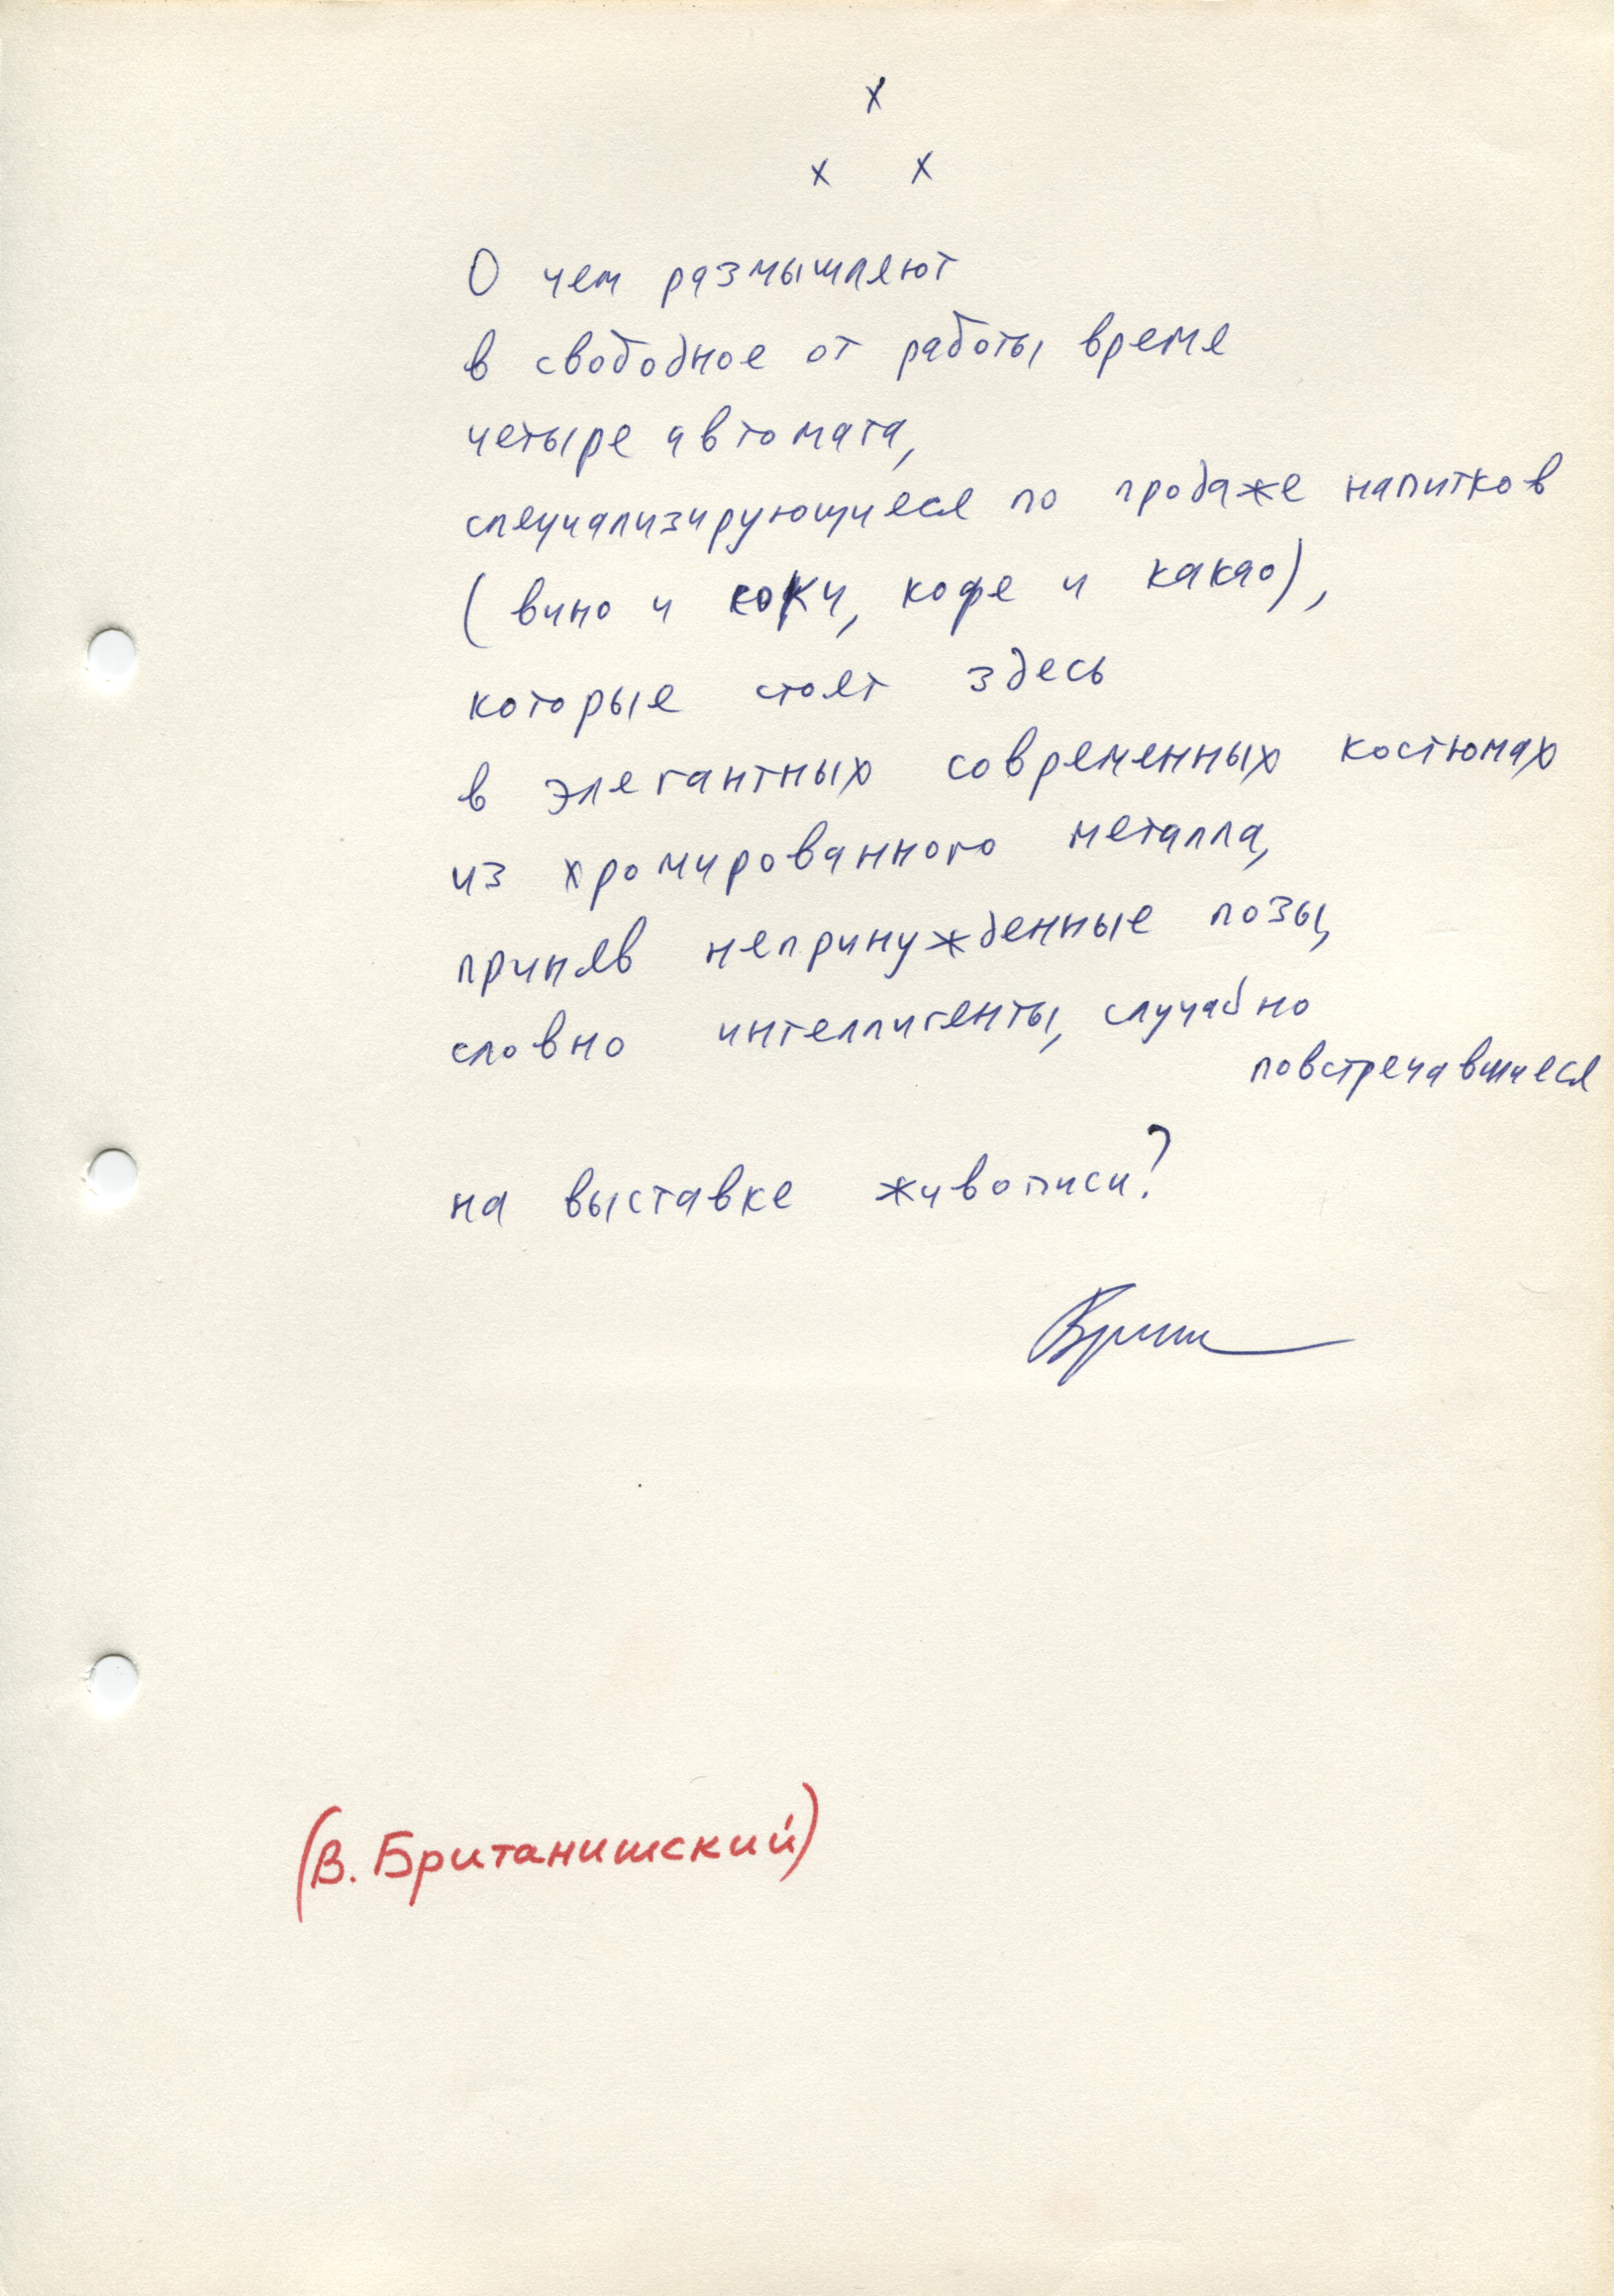 х
х х
О чем размышляют
в свободное от работы время
четыре автомата,
специализирующиеся по продаже напитков
(вино и соки, кофе и какао),
которые стоят здесь
в элегантных современных костюмах
из хромированного металла,
приняв непринужденные позы,
словно интеллигенты, случайно
повстречавшиеся
на выставке живописи?
Брит
(В. Британишский)